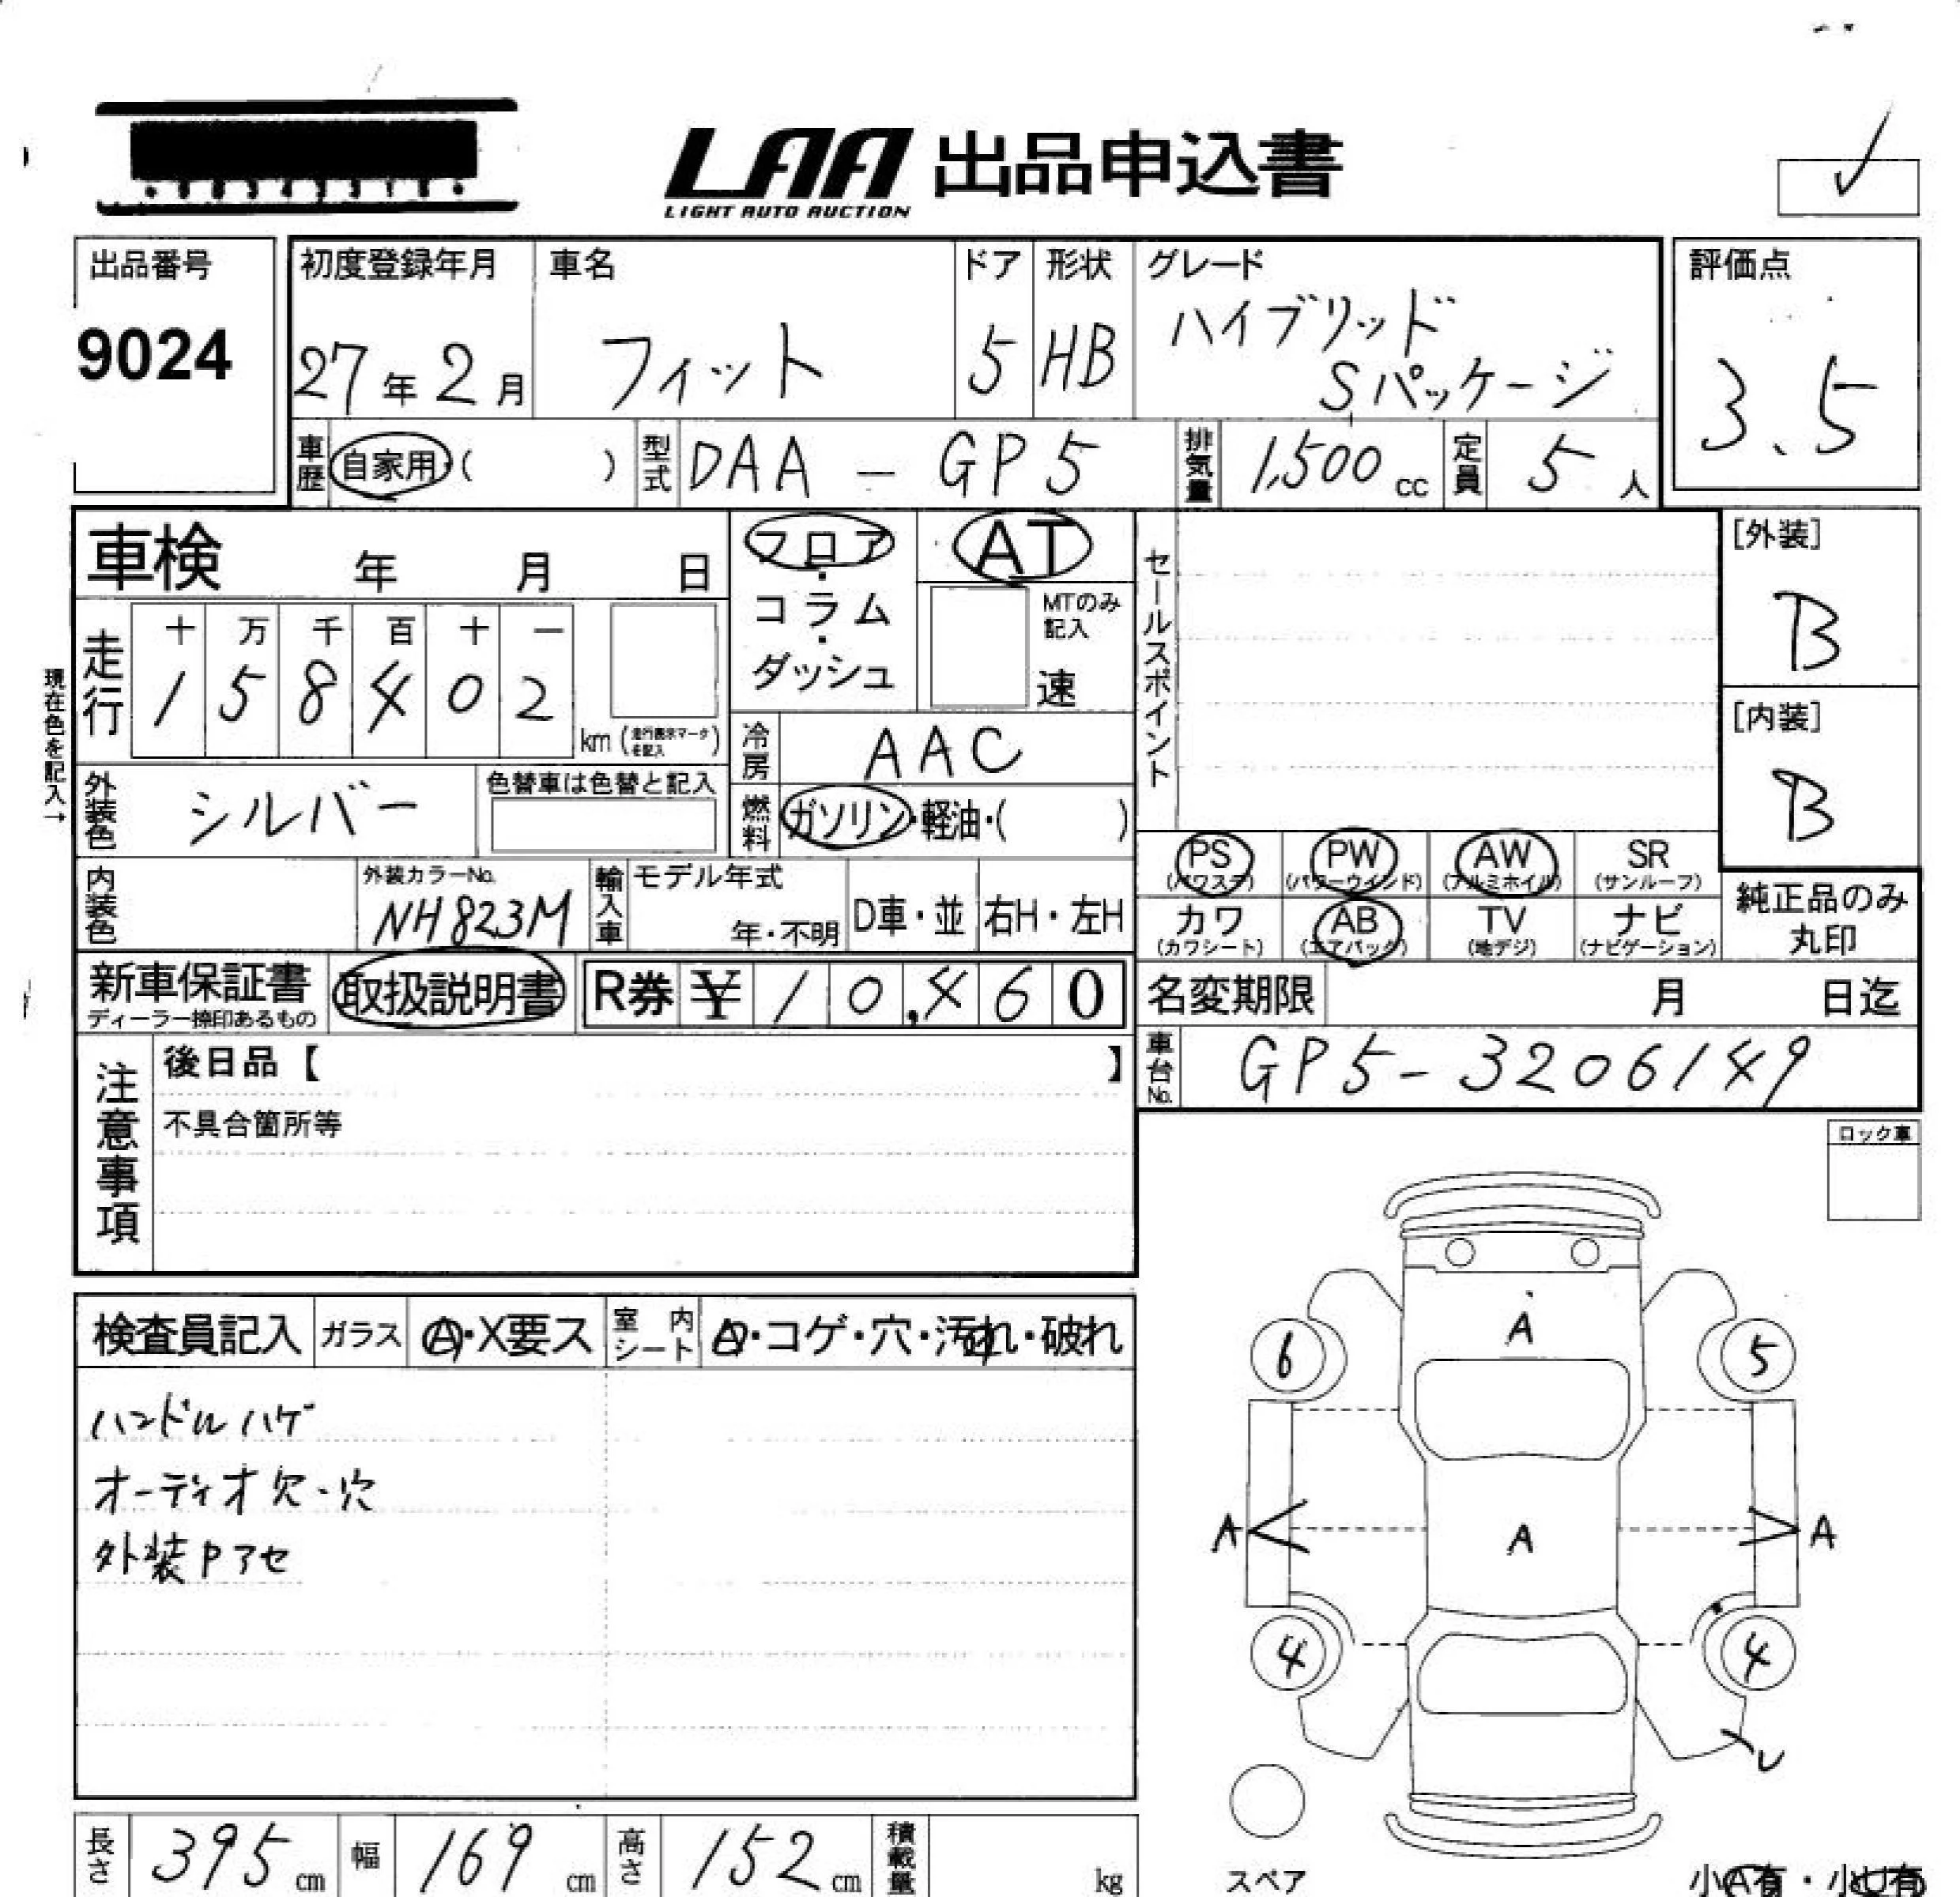 LAA 出品申込書
LIGHT AUTO AUCTION
出品番号
9024
初度登録年月
27年2月
車名
フィット
ドア
5
形状
HB
グレード
ハイブリッド
Sパッケージ
評価点
3.5
車歴
自家用・( )
型式
DAA - GP5
排気量
1,500 cc
定員
5 人
車検 年 月 日
フロア・コラム・ダッシュ
AT
MTのみ記入
速
セールスポイント
[外装]
B
[内装]
B
現在色を記入→
走行
十 万 千 百 十 一
1 5 8 4 0 2
km (走行表示マークを記入)
冷房
AAC
外装色
シルバー
色替車は色替と記入
燃料
ガソリン・軽油・( )
PS
(パワステ)
PW
(パワーウインド)
AW
(アルミホイル)
SR
(サンルーフ)
カワ
(カワシート)
AB
(エアバック)
TV
(地デジ)
ナビ
(ナビゲーション)
純正品のみ
丸印
内装色
外装カラーNo.
NH823M
輸入車
モデル年式
年・不明
D車・並
右H・左H
新車保証書
ディーラー捺印あるもの
取扱説明書
R券 ¥ 10,460
名変期限 月 日迄
車台No.
GP5-3206149
注意事項
後日品【 】
不具合箇所等
ロック車
検査員記入
ガラス
A・X要ス
室内シート
A・コゲ・穴・汚れ・破れ
ハンドルハゲ
オーディオ欠・穴
外装Pアセ
A
6
5
A
A
A
4
4
U
スペア
小A有・小U有
長さ
395 cm
幅
169 cm
高さ
152 cm
積載量
kg